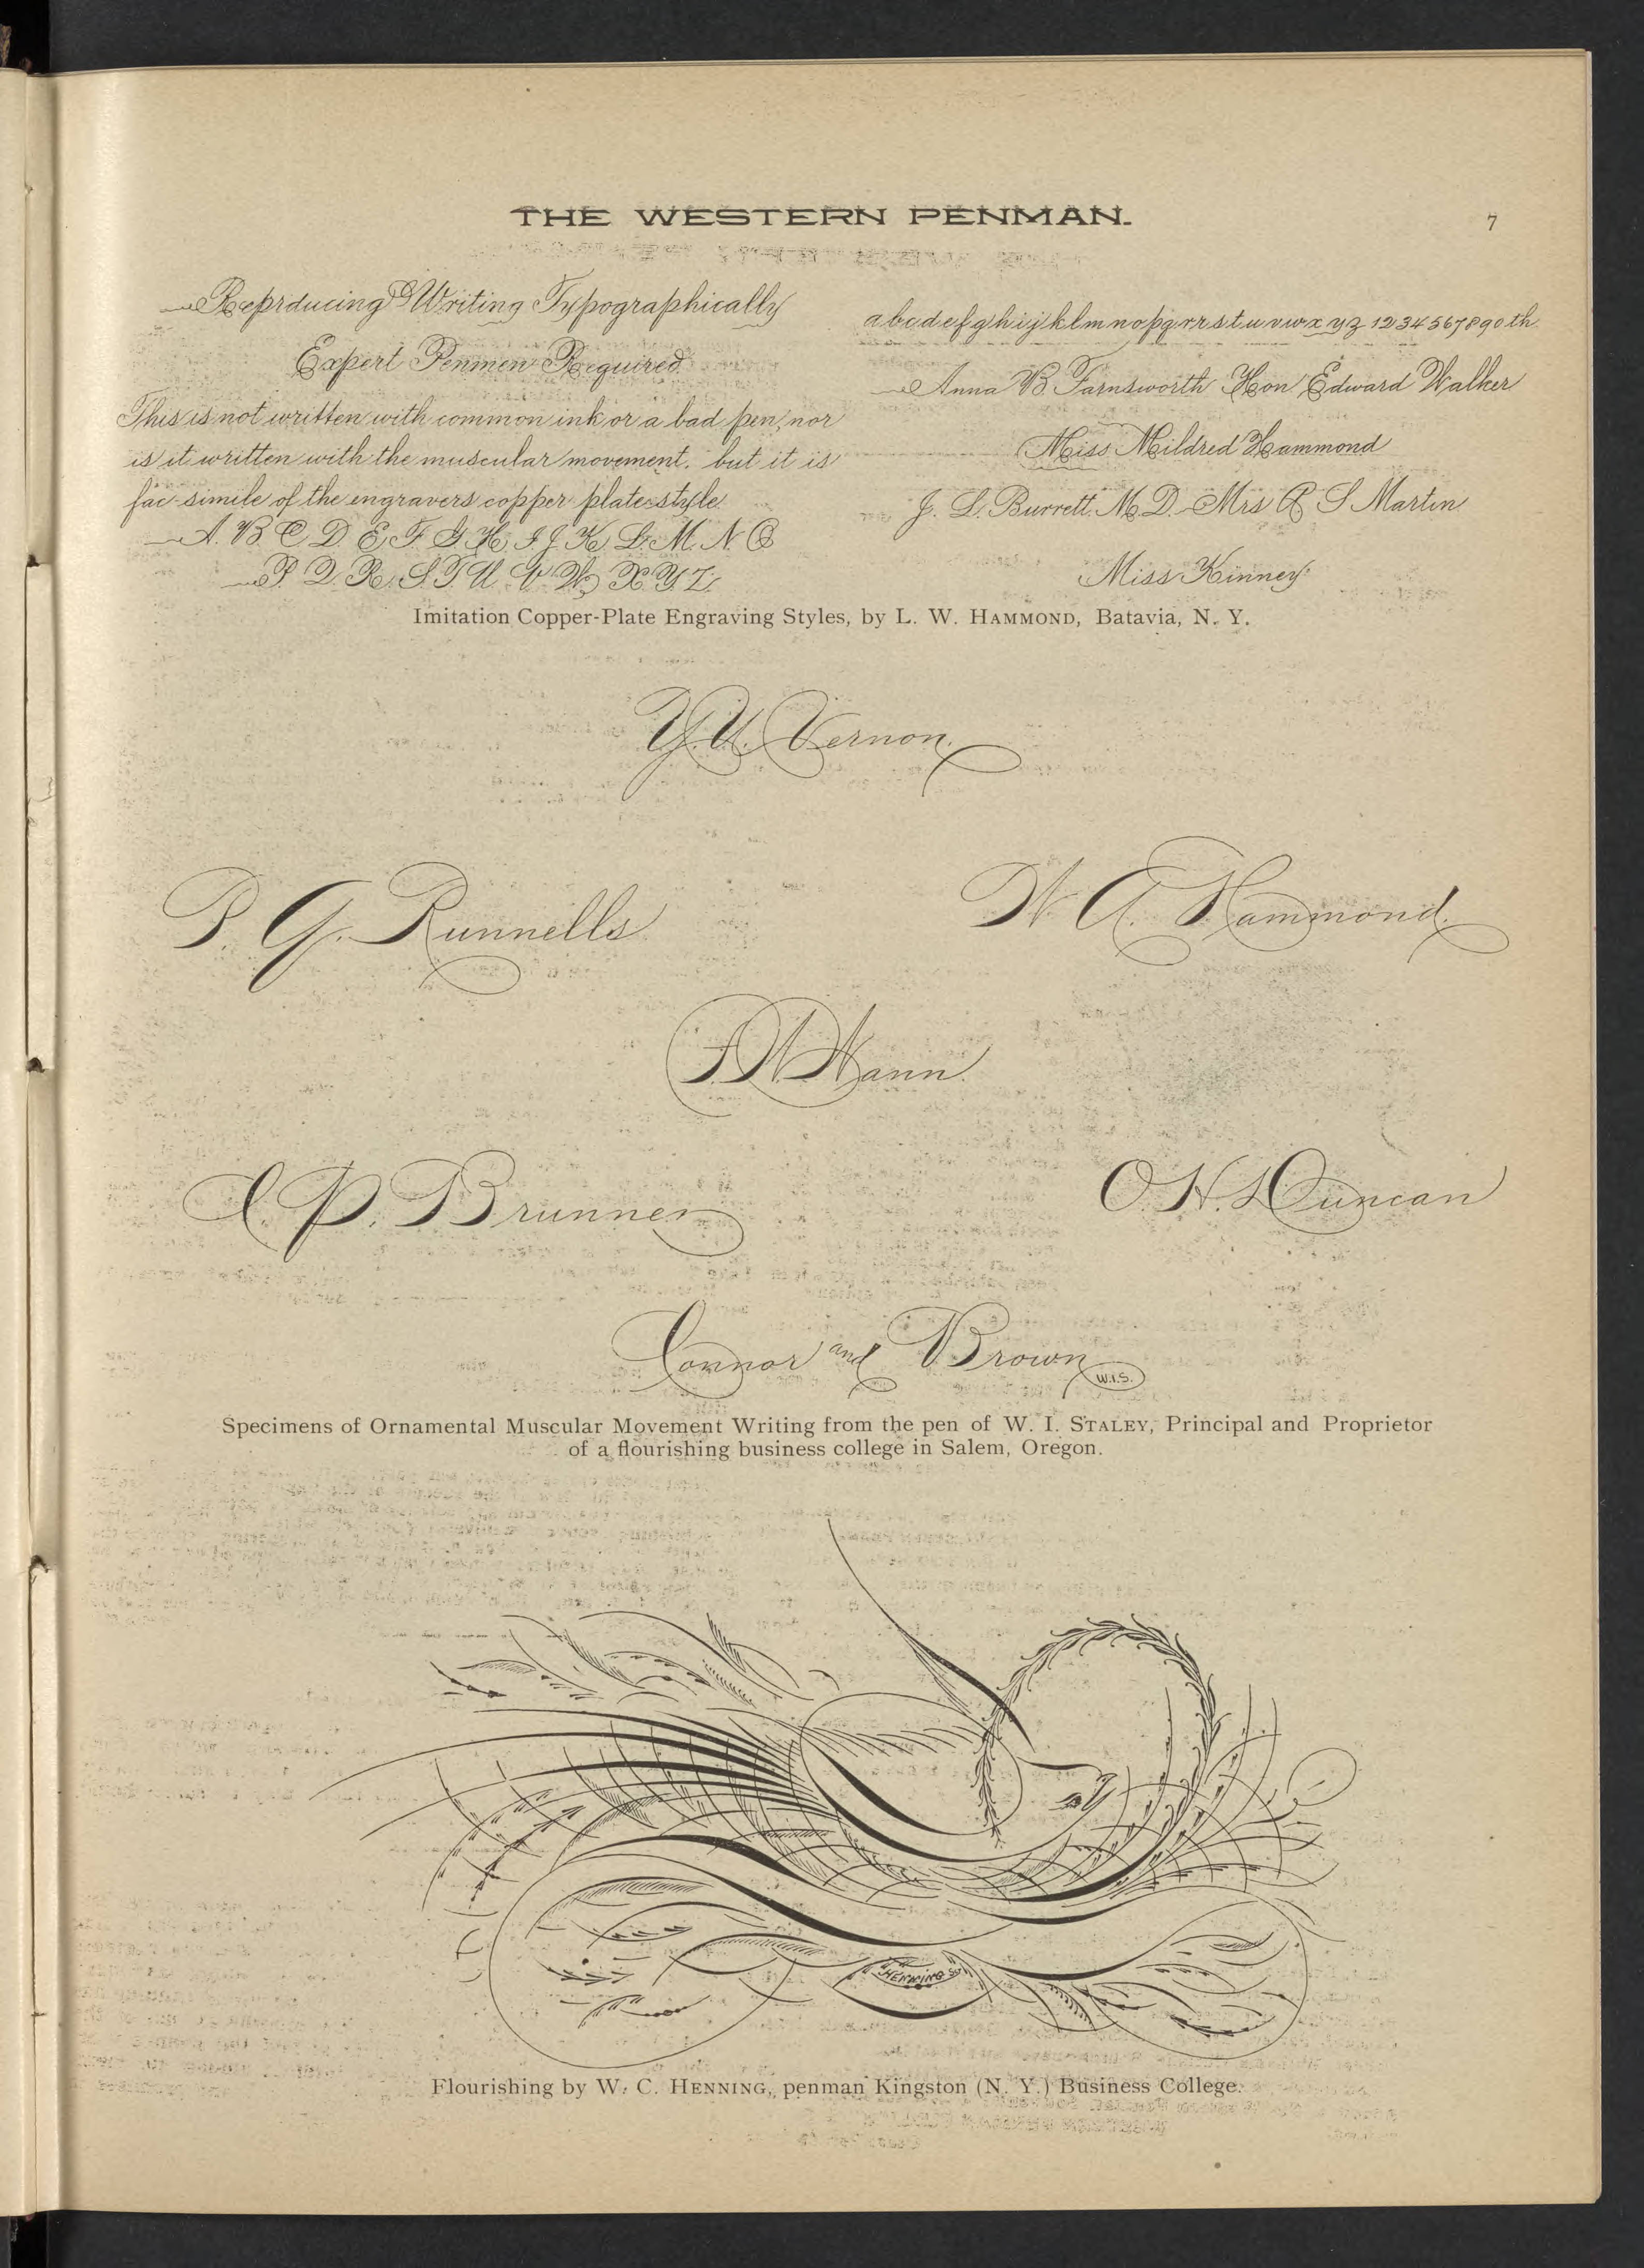 THE WESTERN PENMAN.
7
Reprducing & Writing Typographically
Expert Penmen Required
This is not written with common ink or a bad pen, nor
is it written with the muscular movement. but it is
fac-simile of the engravers copper plate style.
A. B. C. D. E. F. G. H. I. J. K. L. M. N. O
P. Q. R. S. T. U. V. W. X. Y. Z.
abcdefghijklmnopqrrstuvwxyz 1234567890th
Anna B. Farnsworth Hon Edward Walker
Miss Mildred Hammond
J. S. Burrett M.D. Mrs R S Martin
Miss Kinney
Imitation Copper-Plate Engraving Styles, by L. W. HAMMOND, Batavia, N. Y.
Y. U. Vernon.
P. G. Runnells
W. A. Hammond.
F. W. Hann.
C. P. Brunner
O. H. Duncan
Connor and Brown
W.I.S.
Specimens of Ornamental Muscular Movement Writing from the pen of W. I. STALEY, Principal and Proprietor
of a flourishing business college in Salem, Oregon.
HENNING
Flourishing by W. C. HENNING, penman Kingston (N. Y.) Business College.